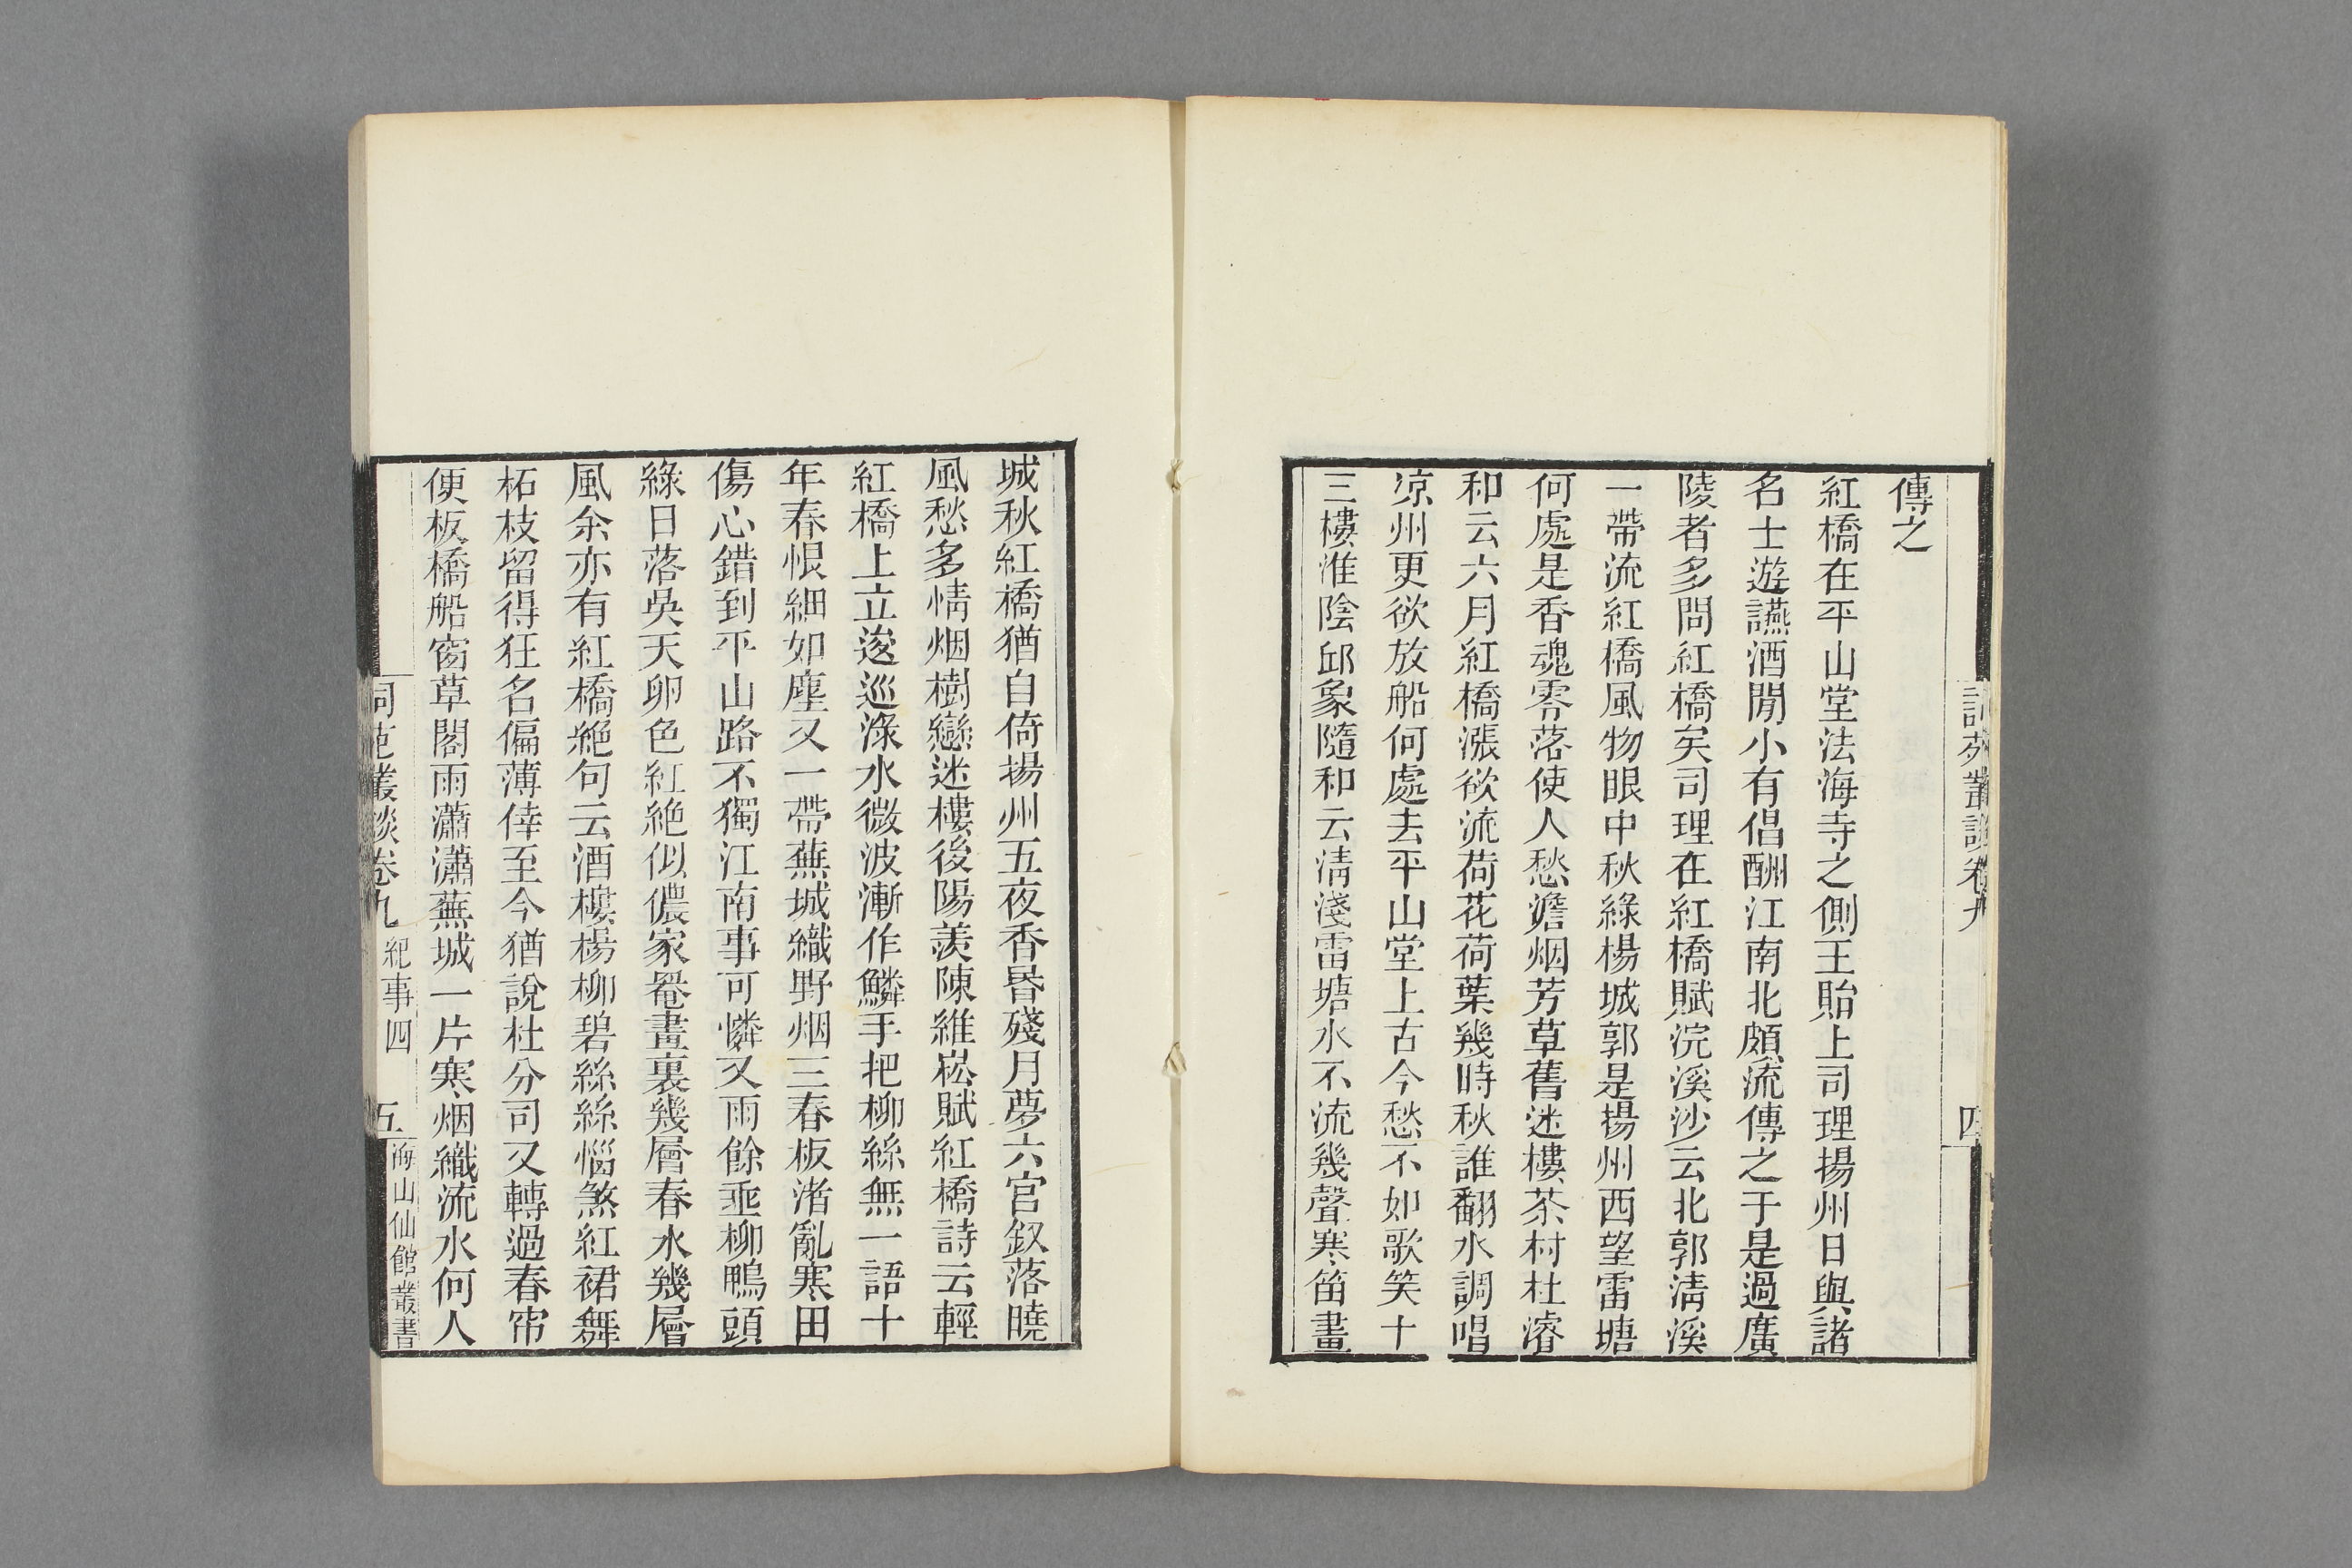 詞苑叢談卷九
四
傳之
紅橋在平山堂法海寺之側王貽上司理揚州日與諸
名士遊讌酒閒小有倡酬江南北頗流傳之于是過廣
陵者多問紅橋矣司理在紅橋賦浣溪沙云北郭清溪
一帶流紅橋風物眼中秋綠楊城郭是揚州西望雷塘
何處是香魂零落使人愁澹烟芳草舊迷樓茶村杜濬
和云六月紅橋漲欲流荷花荷葉幾時秋誰翻水調唱
凉州更欲放船何處去平山堂上古今愁不如歌笑十
三樓淮陰邱象隨和云清淺雷塘水不流幾聲寒笛畫
城秋紅橋猶自倚揚州五夜香昬殘月夢六宮釵落曉
風愁多情烟樹戀迷樓後陽羨陳維崧賦紅橋詩云輕
紅橋上立逡巡淥水微波漸作鱗手把柳絲無一語十
年春恨細如塵又一帶蕪城織野烟三春板渚亂寒田
傷心錯到平山路不獨江南事可憐又雨餘垂柳鴨頭
綠日落吳天卵色紅絶似儂家罨畫裏幾層春水幾層
風余亦有紅橋絶句云酒樓楊柳碧絲絲惱煞紅裙舞
柘枝留得狂名偏薄倖至今猶說杜分司又轉過春帘
便板橋船窗草閣雨瀟瀟蕪城一片寒烟織流水何人
詞苑叢談卷九 紀事四
五
海山仙館叢書